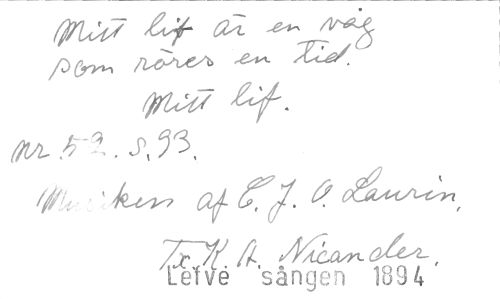 Mitt lif är en våg
som röres en tid.
Mitt lif.
nr 52. s. 93.
Musiken af C. J. O. Laurin.
Tx. K. A. Nicander.
Lefve sången 1894